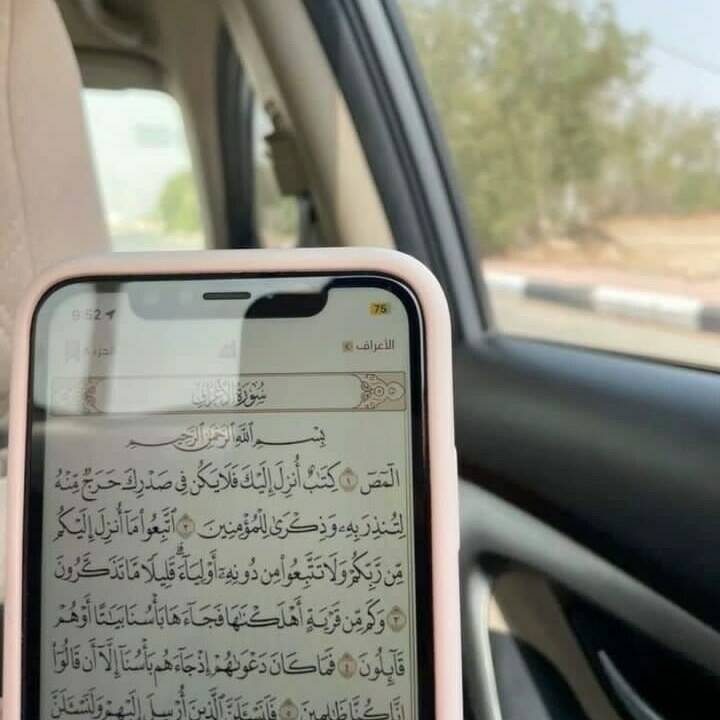 9:52
75
الأعراف
سُورَةُ الأَعْرَافِ
بِسْمِ اللَّهِ الرَّحْمَٰنِ الرَّحِيمِ
الٓمٓصٓ ١ كِتَٰبٌ أُنزِلَ إِلَيْكَ فَلَا يَكُن فِى صَدْرِكَ حَرَجٌ مِّنْهُ
لِتُنذِرَ بِهِۦ وَذِكْرَىٰ لِلْمُؤْمِنِينَ ٢ ٱتَّبِعُوا۟ مَآ أُنزِلَ إِلَيْكُم
مِّن رَّبِّكُمْ وَلَا تَتَّبِعُوا۟ مِن دُونِهِۦٓ أَوْلِيَآءَ ۗ قَلِيلًا مَّا تَذَكَّرُونَ
٣ وَكَم مِّن قَرْيَةٍ أَهْلَكْنَٰهَا فَجَآءَهَا بَأْسُنَا بَيَٰتًا أَوْ هُمْ
قَآئِلُونَ ٤ فَمَا كَانَ دَعْوَىٰهُمْ إِذْ جَآءَهُم بَأْسُنَآ إِلَّآ أَن قَالُوٓا۟
إِنَّا كُنَّا ظَٰلِمِينَ ٥ فَلَنَسْـَٔلَنَّ ٱلَّذِينَ أُرْسِلَ إِلَيْهِمْ وَلَنَسْـَٔلَنَّ